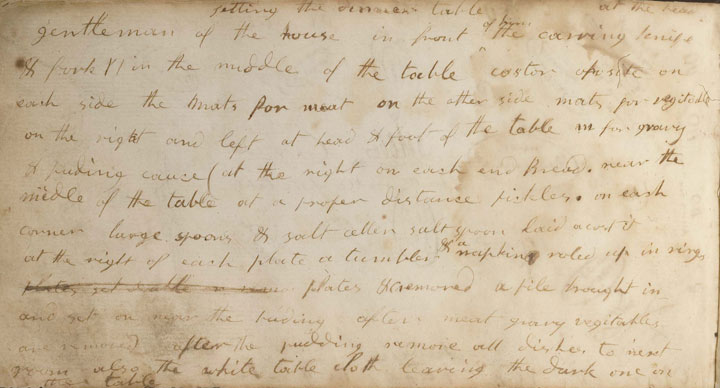 setting the dinner table at the head
gentleman of the house in front of him the carving knife
& fork in the middle of the table castor oposite on
each side the mats for meat on the other side mats for vegitables
on the right and left at head & foot of the table m for gravy
& puding cause (at the right on each end Bread. near the
midle of the table at a proper distance pickles. on each
corner large spoons & salt celler salt spoon laid acost it
at the right of each plate a tumbler & a napking roled up in rings
plates set plates & removed a pile brought in
and set on near the puding after meat gravy vegitables
are removed after the pudding remove all dishes to next
room also the white table cloth leaving the dark one on
the table